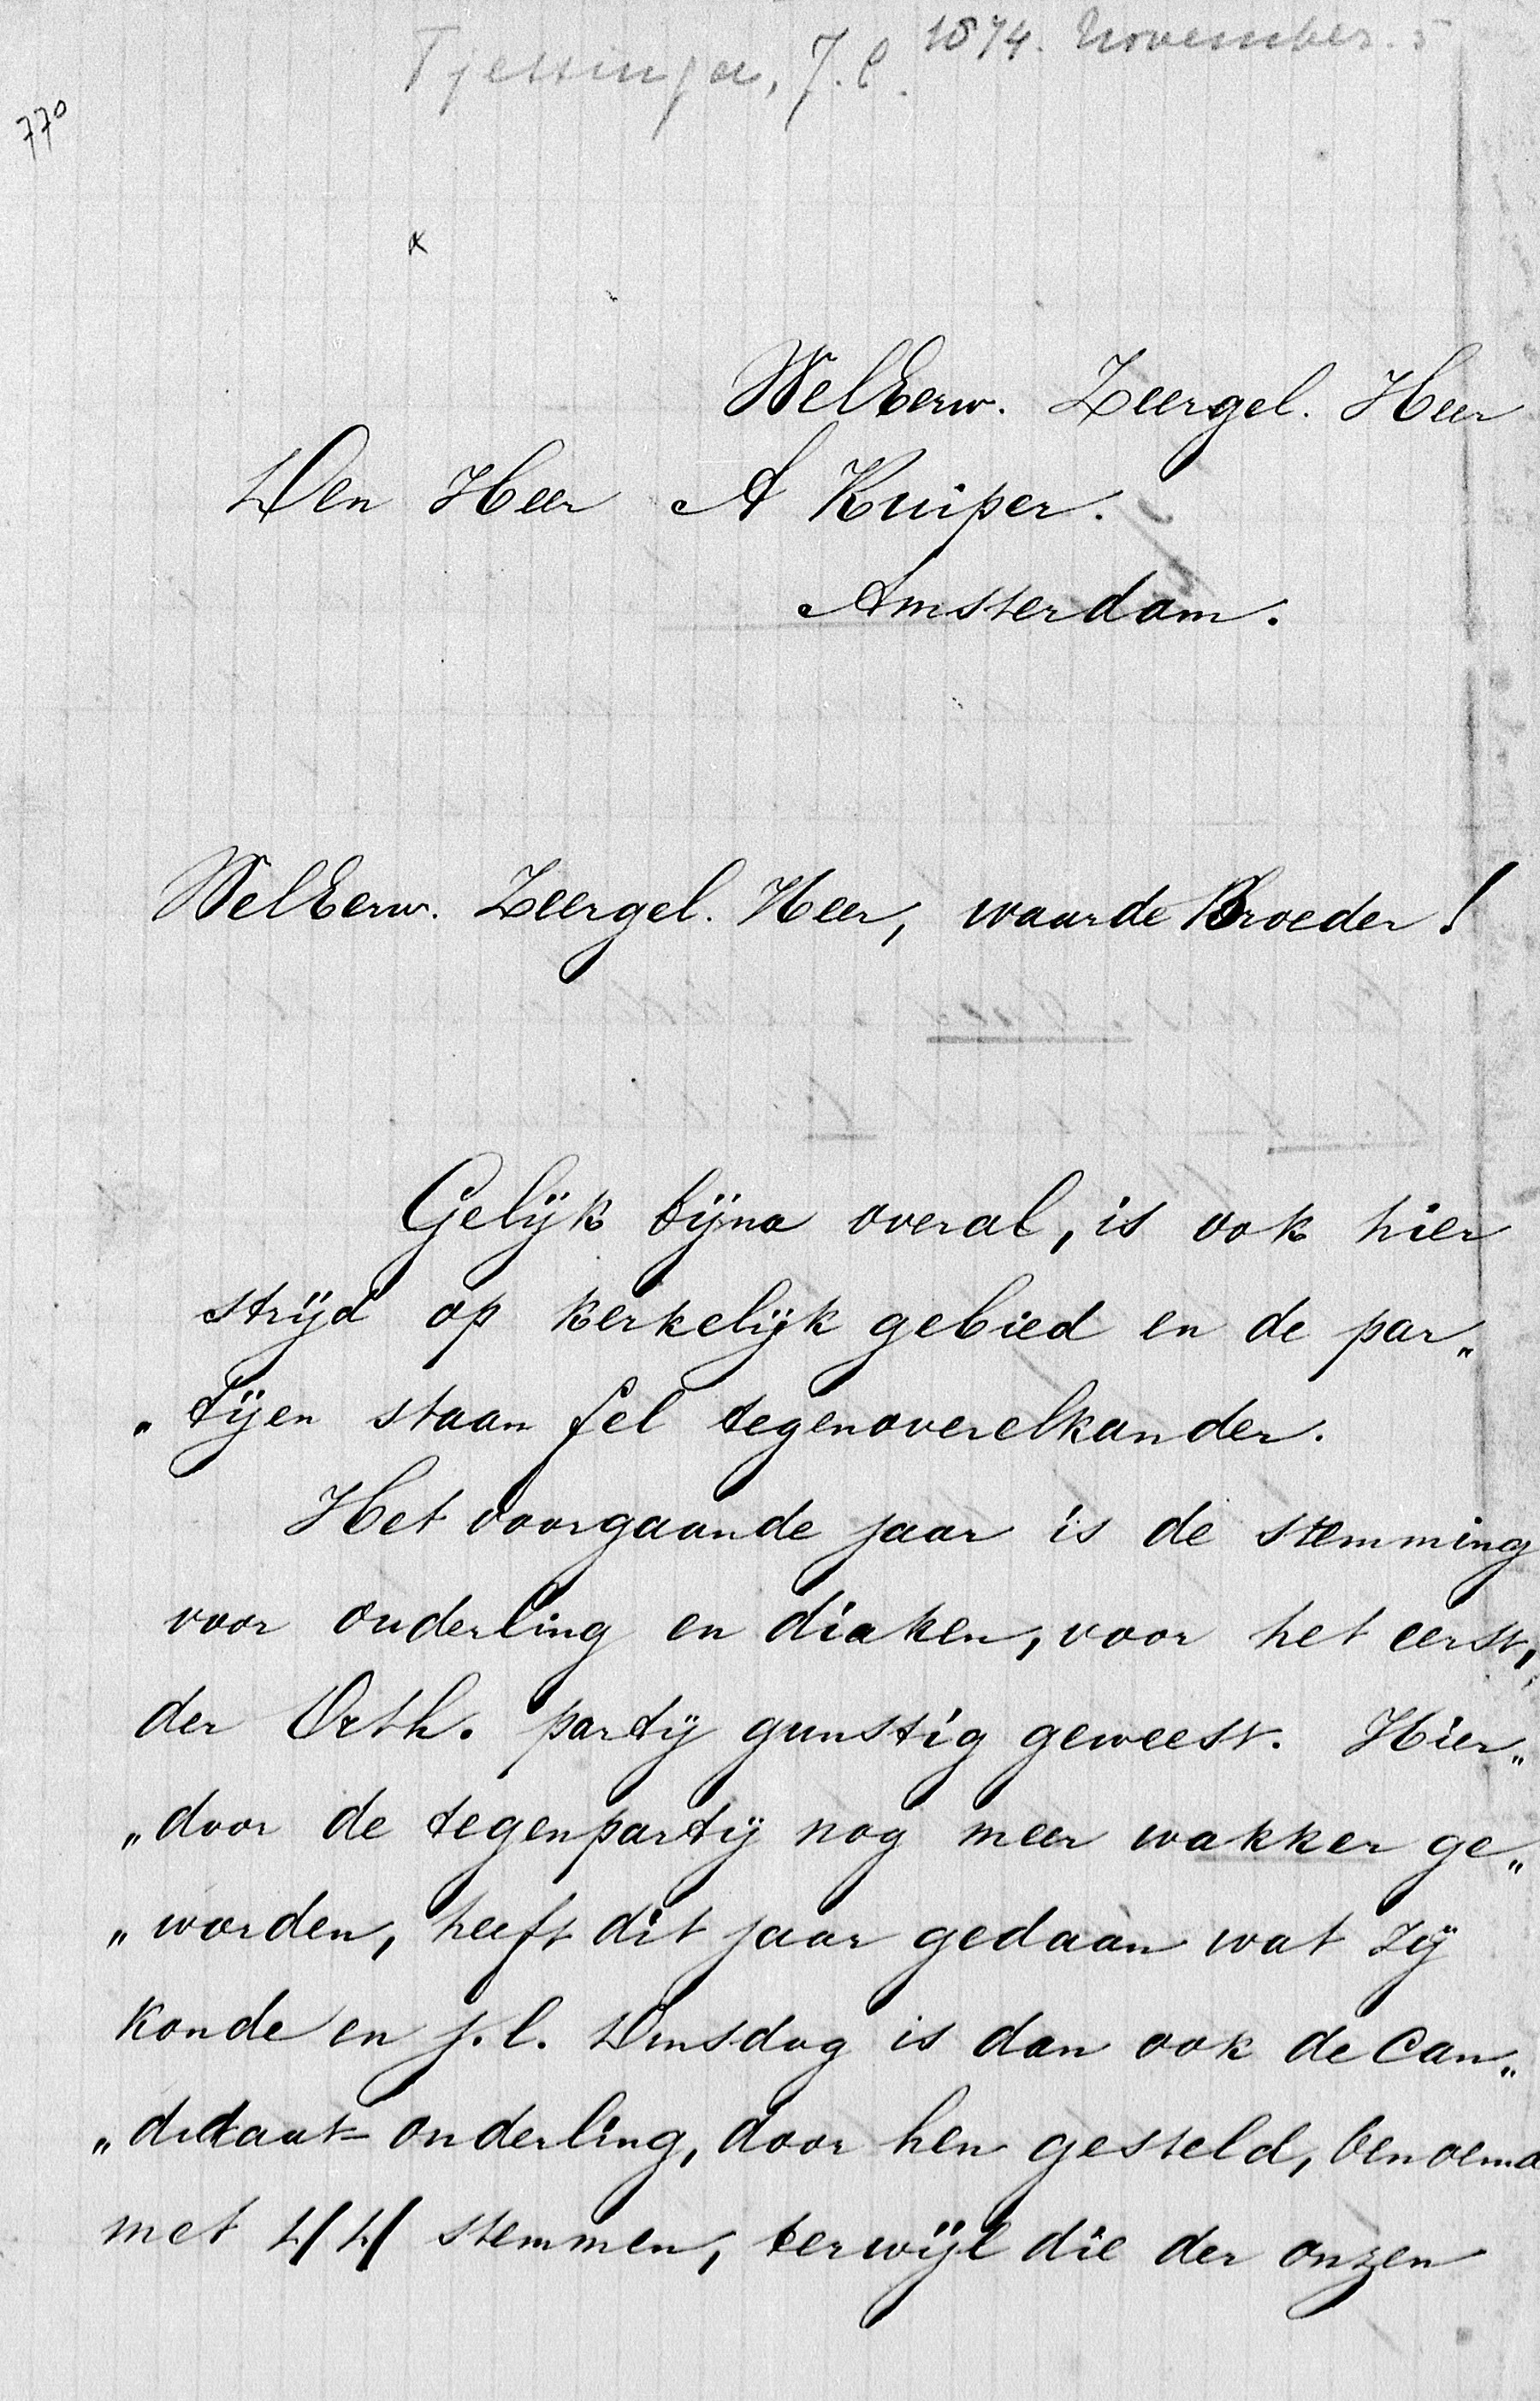 1874. November. 5
Tjessinga, J. C.
770
x
WelEerw. Zeergel. Heer
Den Heer A Kuiper.
Amsterdam.
WelEerw. Zeergel. Heer, waarde Broeder!
Gelijk bijna overal, is ook hier
strijd op kerkelijk gebied en de par„
„tijen staan fel tegenoverelkander.
Het voorgaande jaar is de stemming
voor ouderling en diaken, voor het eerst,
der Orth. partij gunstig geweest. Hier„
„door de tegenpartij nog meer wakker ge„
„worden, heeft dit jaar gedaan wat zij
konde en j.l. Dinsdag is dan ook de Can„
„didaat-ouderling, door hen gesteld, benoemd
met 44 stemmen, terwijl die der onzen